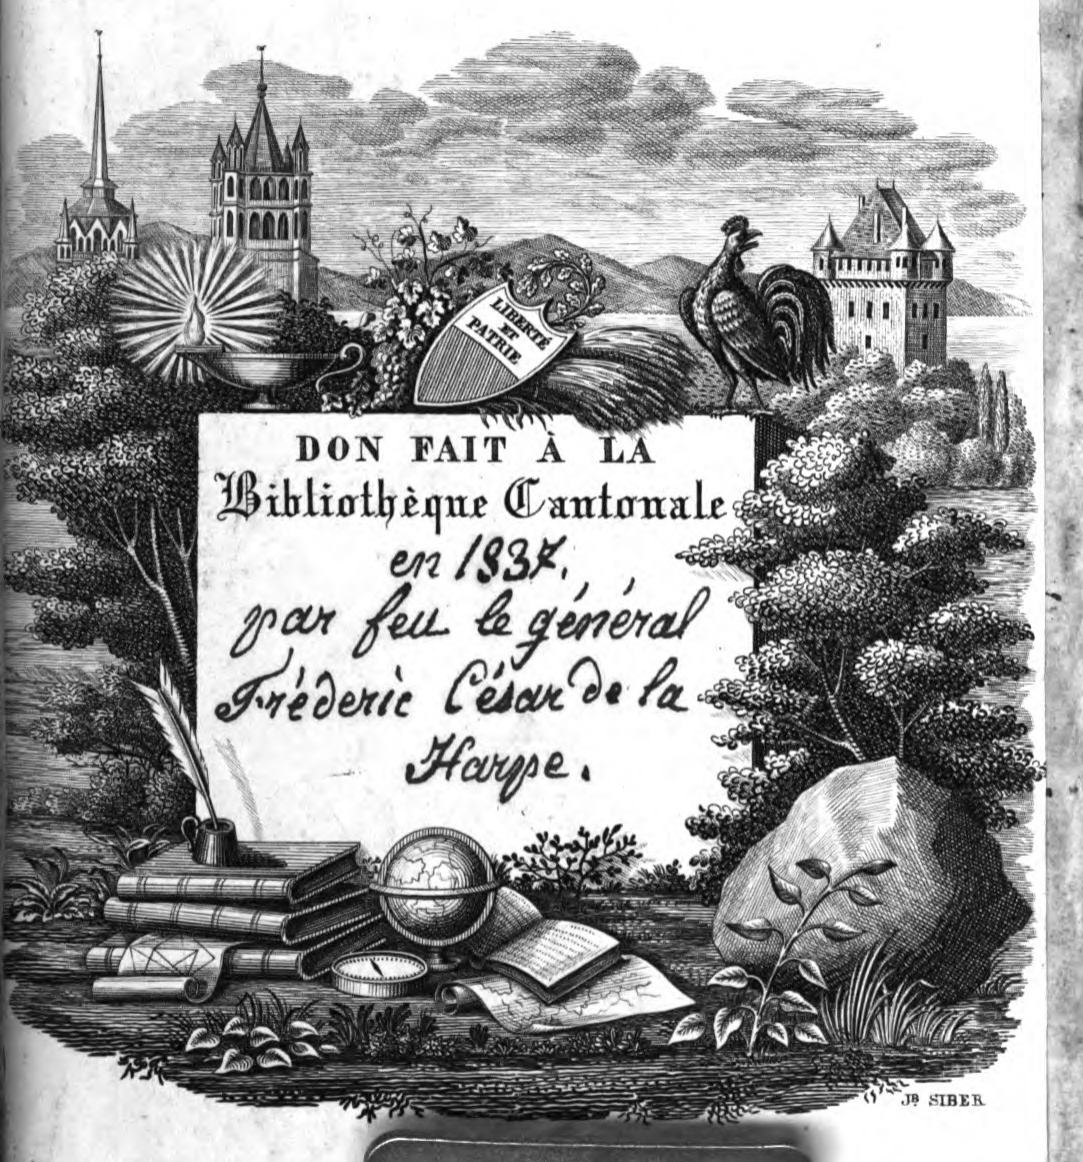 LIBERTÉ
ET
PATRIE
DON FAIT À LA
Bibliothèque Cantonale
en 1837.
par feu le général
Fréderic César de la
Harpe.
JB SIBER